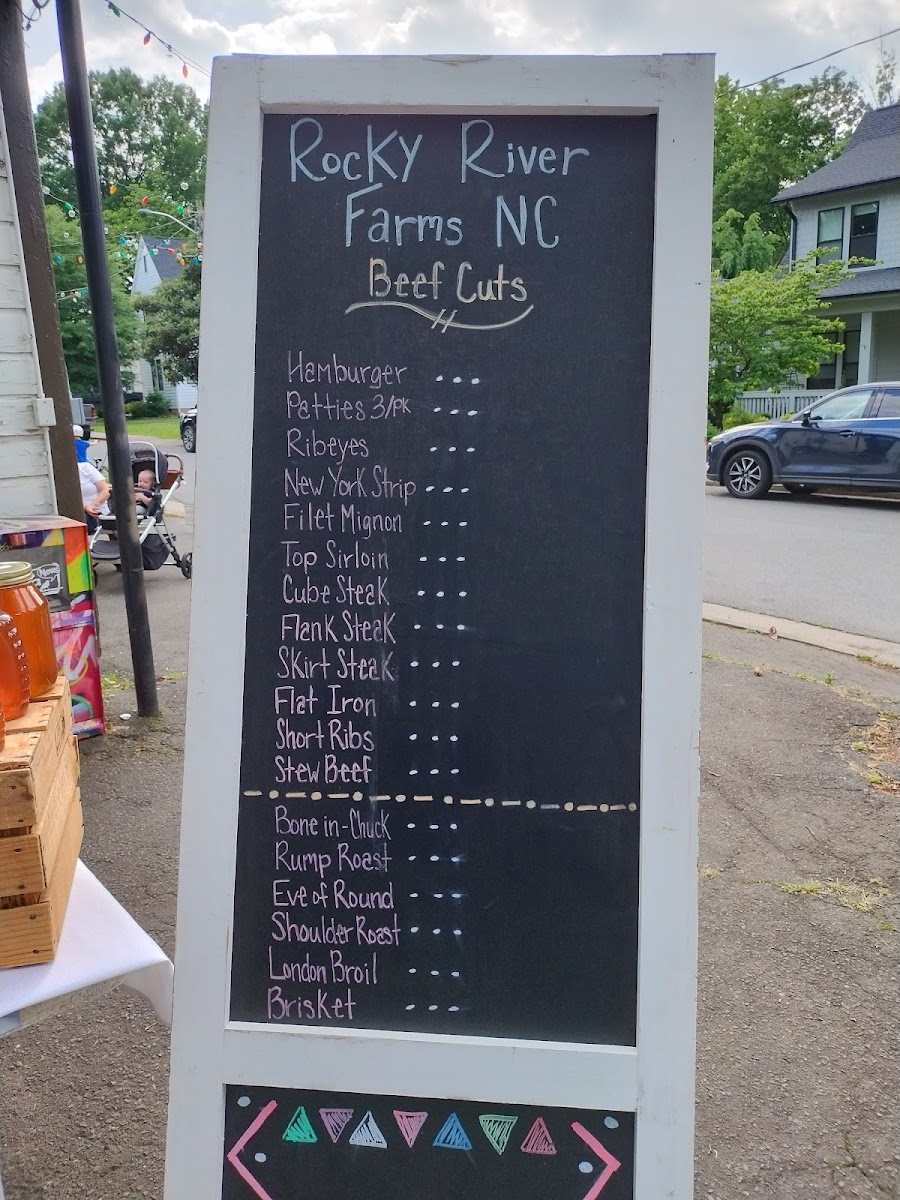 Rocky River
Farms NC
Beef Cuts
Hamburger ...
Patties 3/pk ...
Ribeyes ...
New York Strip ...
Filet Mignon ...
Top Sirloin ...
Cube Steak ...
Flank Steak ...
Skirt Steak ...
Flat Iron ...
Short Ribs ...
Stew Beef ...
Bone in-Chuck ...
Rump Roast ...
Eve of Round ...
Shoulder Roast ...
London Broil ...
Brisket ...